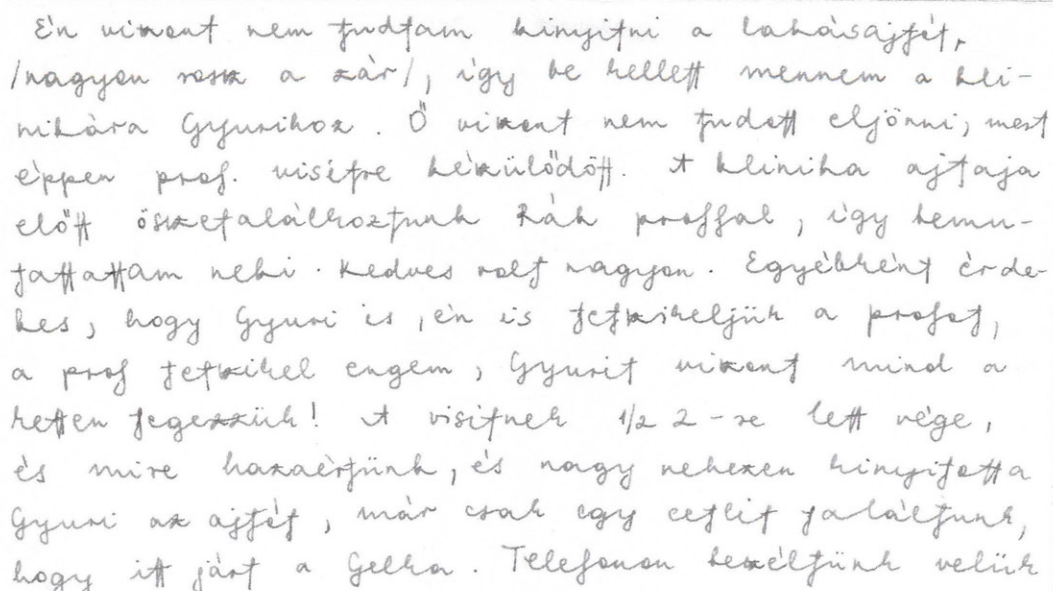 Én viszont nem tudtam kinyitni a lakásajtót,
/nagyon rossz a zár/, így be kellett mennem a kli-
nikára Gyurihoz. Ő viszont nem tudott eljönni, mert
éppen prof. visitre készülődött. A klinika ajtaja
előtt összetalálkoztunk Rák proffal, így bemu-
tattattam neki. Kedves volt nagyon. Egyébként érde-
kes, hogy Gyuri is, én is tetszikeljük a profot,
a prof tetszikel engem, Gyurit viszont mind a
ketten tegezzük! A visitnek 1/2 2-re lett vége,
és mire hazaértünk, és nagy nehezen kinyitotta
Gyuri az ajtót, már csak egy cetlit találtunk,
hogy itt járt a Gelka. Telefonon beszéltünk velük